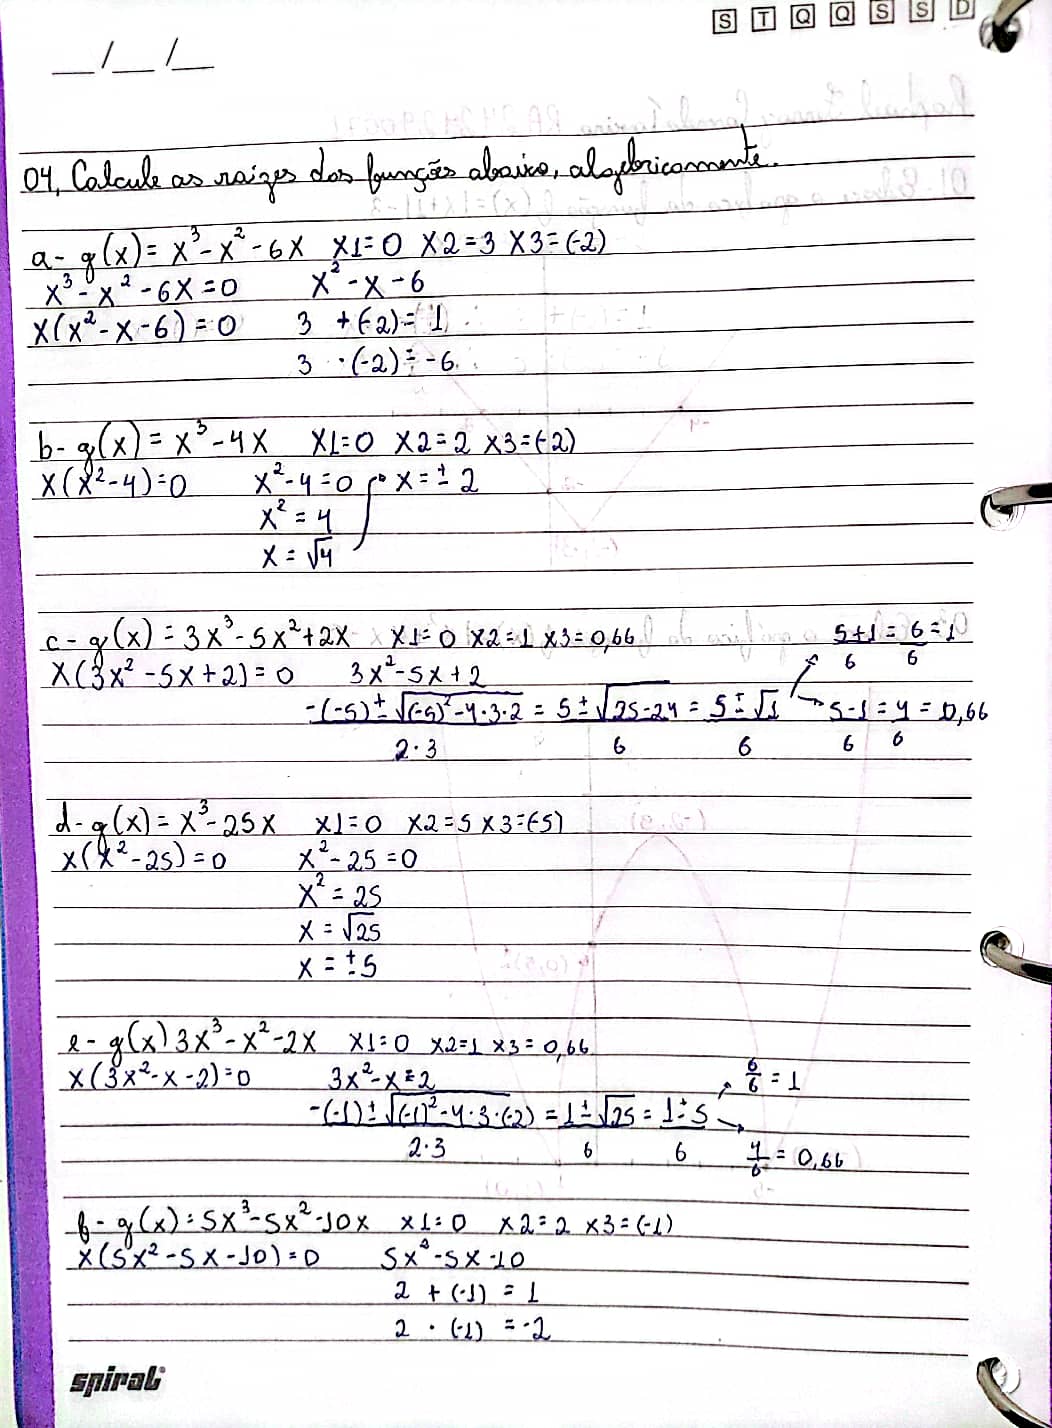 S T Q Q S S D
__/__/__
04. Calcule as raizes das funções abaixo, algebricamente.
a- g(x) = x³ - x² - 6x x1=0 x2=3 x3=(-2)
x³ - x² - 6x = 0 x² - x - 6
x(x² - x - 6) = 0 3 + (-2) = 1
3 · (-2) = -6.
b- g(x) = x³ - 4x x1=0 x2=2 x3=(-2)
x(x² - 4) = 0 x² - 4 = 0 x = ± 2
x² = 4
x = √4
c- g(x) = 3x³ - 5x² + 2x x1=0 x2=1 x3=0,66 5+1 = 6 = 1
6 6
x(3x² - 5x + 2) = 0 3x² - 5x + 2
-(-5) ± √(-5)² - 4·3·2 = 5 ± √25-24 = 5 ± √1 5-1 = 4 = 0,66
2·3 6 6 6 6
d- g(x) = x³ - 25x x1=0 x2=5 x3=(-5)
x(x² - 25) = 0 x² - 25 = 0
x² = 25
x = √25
x = ± 5
e- g(x) 3x³ - x² - 2x x1=0 x2=1 x3=0,66
x(3x² - x - 2) = 0 3x² - x = 2 6/6 = 1
-(-1) ± √(-1)² - 4·3·(-2) = 1 ± √25 = 1 ± 5
2·3 6 6 4/6 = 0,66
f- g(x) = 5x³ - 5x² - 10x x1=0 x2=2 x3=(-1)
x(5x² - 5x - 10) = 0 5x² - 5x - 10
2 + (-1) = 1
2 · (-1) = -2
spiral